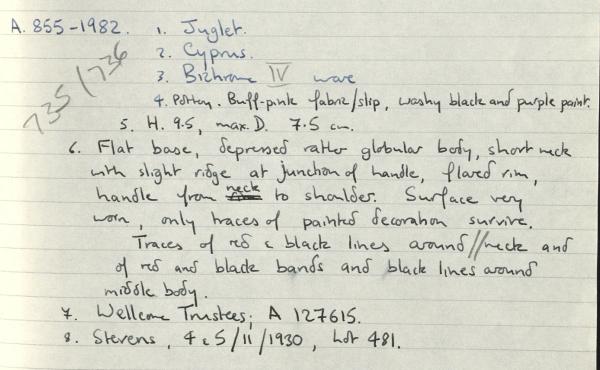 A. 855-1982. 1. Juglet.
735/736
2. Cyprus.
3. Bichrome IV ware
4. Pottery. Buff-pink fabric/slip, washy black and purple paint.
5. H. 9.5, max. D. 7.5 cm.
6. Flat base, depressed rather globular body, short neck
with slight ridge at junction of handle, flared rim,
handle from neck to shoulder. Surface very
worn, only traces of painted decoration survive.
Traces of red & black lines around//neck and
of red and black bands and black lines around
middle body.
7. Wellcome Trustees; A 127615.
8. Stevens, 4 & 5/11/1930, Lot 481.